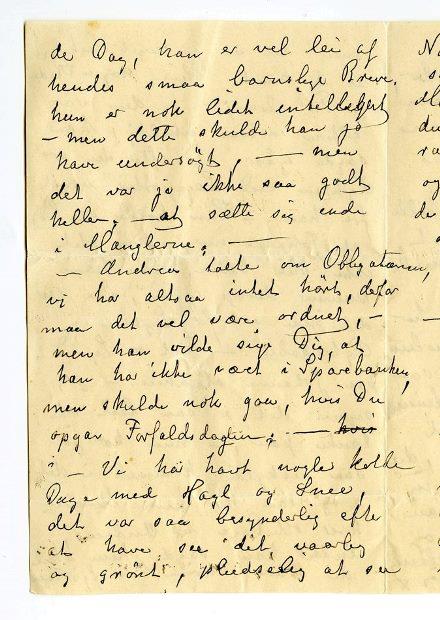 de Dag, han er vel lei af
hendes smaa barnslige Breve.
hun er nok lidet intelligent
– men dette skulde han jo
have undersögt, — men
det var jo ikke saa godt
heller, – at sætte sig inde
i Manglerne, —
– Andrea talte om Obligationen,
vi har altsaa intet hört, derfor
maa det vel være ordnet, –
men han vilde sige Dig, at
han har ikke været i Sparebanken,
men skulde nok gaa, hvis Du
opgav Forfaldsdagen, — hvis
– Vi har havt nogle kolde
Dage med Hagl og Snee,
det var saa besynderlig efter
at have seet det vaarlig
og grönt, pludselig at see
N
s
M
du
ra
og
de